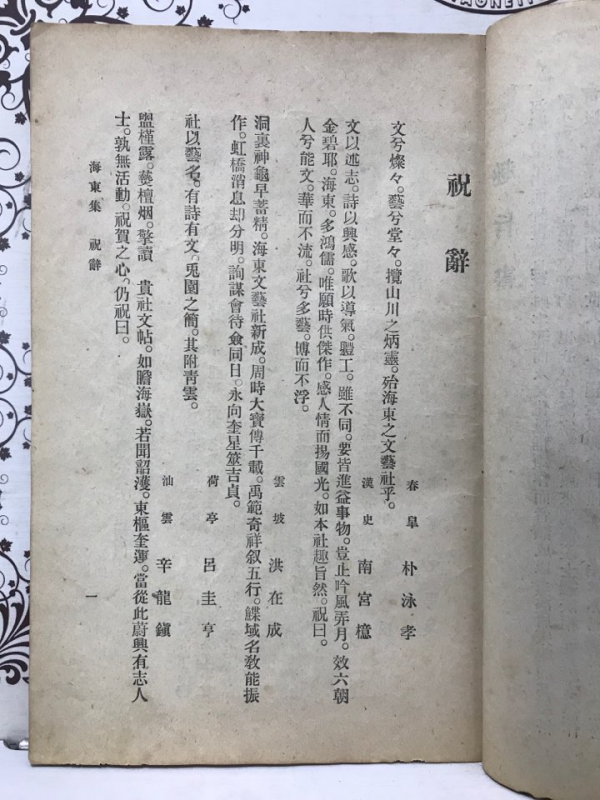 祝辭
文兮燦々。藝兮堂々。攬山川之炳靈。殆海東之文藝社乎。
春皐 朴泳孝
文以述志。詩以興感。歌以導氣。體工。雖不同。要皆進益事物。豈止吟風弄月。效六朝
金碧耶。海東。多鴻儒。唯願時供傑作。感人情而揚國光。如本社趣旨然。祝曰。
人兮能文。華而不流。社兮多藝。博而不浮。
漢史 南宮檍
洞裏神龜早蓄精。海東文藝社新成。周時大寶傳千載。禹範奇祥叙五行。鰈域名敎能振
作。虹橋消息却分明。詢謀會待僉同日。永向奎星筮吉貞。
雲坡 洪在成
社以藝名。有詩有文。兎園之簡。其附靑雲。
荷亭 呂圭亨
盥槿露。爇檀烟。擎讀 貴社文帖。如瞻海嶽。若聞韶濩。東樞奎運。當從此蔚興有志人
士。孰無活動。祝賀之心。仍祝曰。
汕雲 辛龍鎭
海東集 祝辭
一